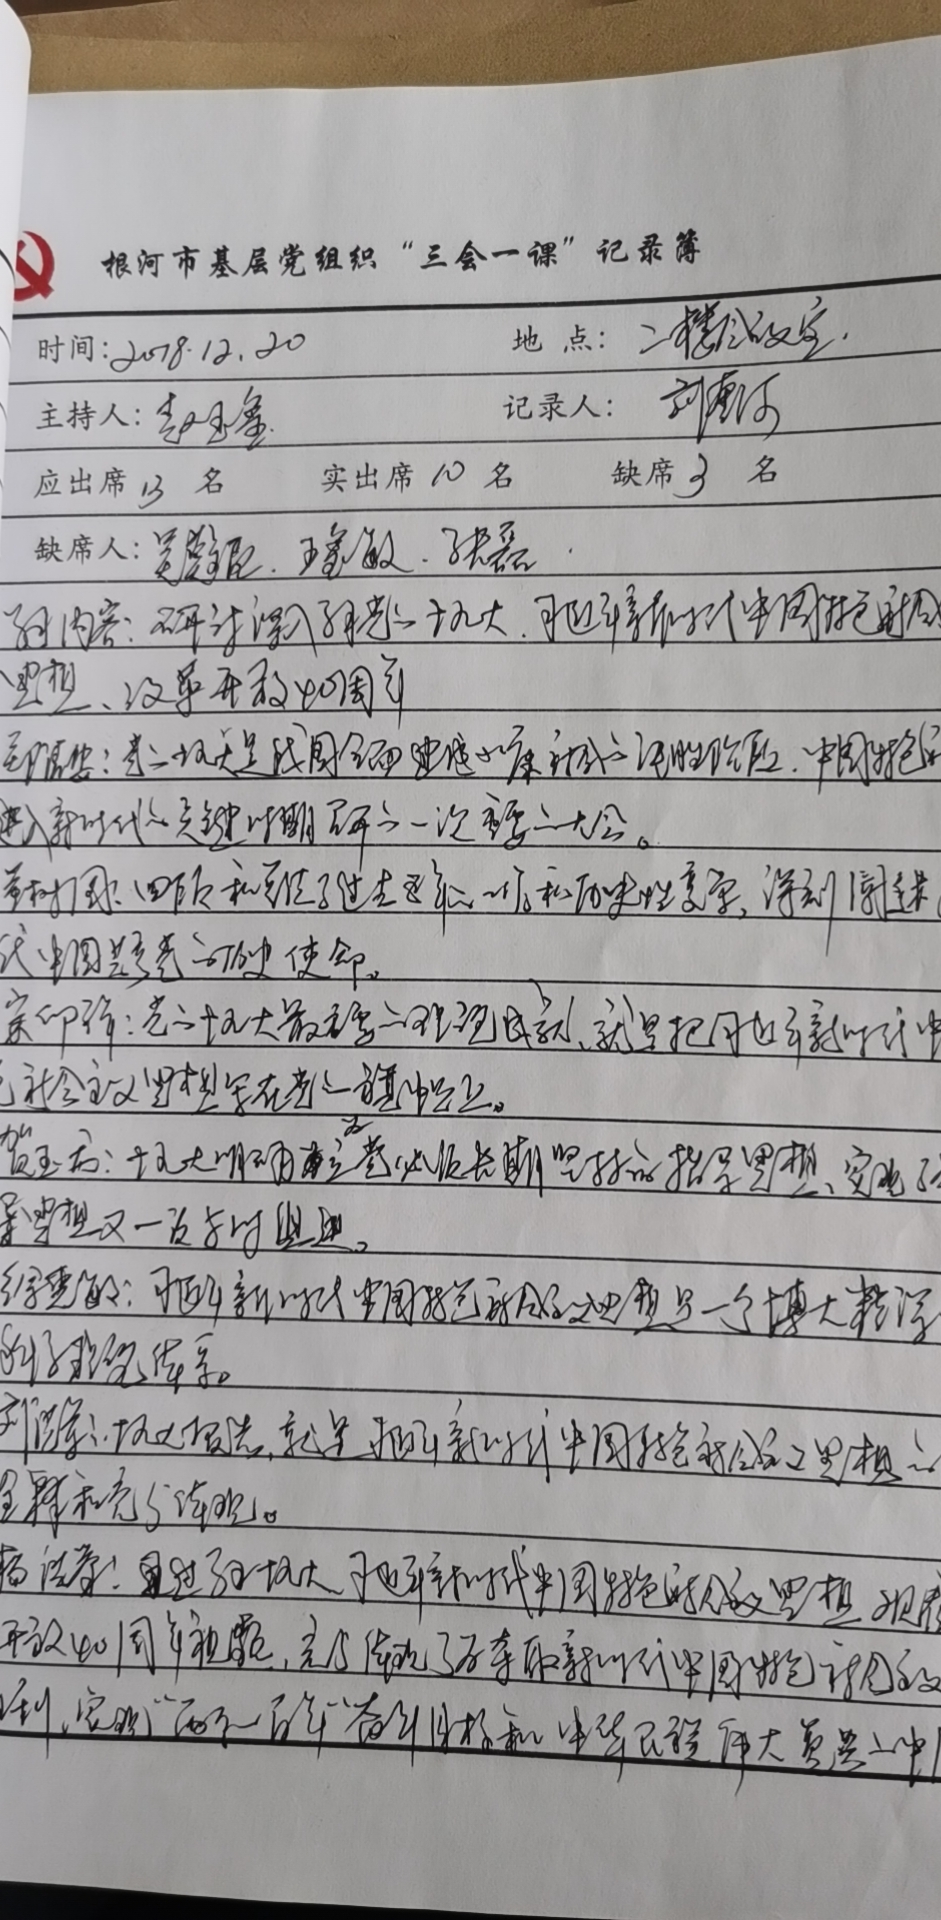 根河市基层党组织“三会一课”记录簿
时间：2018.12.20 地点：二楼会议室.
主持人：赵玉鑫. 记录人：刘
应出席13名 实出席10名 缺席3名
缺席人： . 王 敏. 张磊.
学习内容：研讨深入学习党的十九大.习近平新时代中国特色社会
思想、改革开放40周年
：党的十九大是我国全面建成小康社会的决胜阶段.中国特色
进入新时代的关键时期召开的一次重要的大会。
：回顾和总结了过去五年的工作和历史性变革，深刻阐述
代中国共产党的历史使命。
：党的十九大最重要的理论成就、就是把习近平新时代中
色社会主义思想写在党的旗帜上。
贺玉 ：十九大明确确立为党必须长期坚持的指导思想、实现了
导思想又一次与时俱进。
徐 敏：习近平新时代中国特色社会主义思想是一个博大精深
科学理论体系。
刘 ：十九大报告，就是习近平新时代中国特色社会主义思想的
和充分体现。
杨 ：通过学习十九大、习近平新时代中国特色社会主义思想
开放40周年 ，充分体现了夺取新时代中国特色社会主义
胜利、实现“两个一百年”奋斗目标和中华民族伟大复兴的中